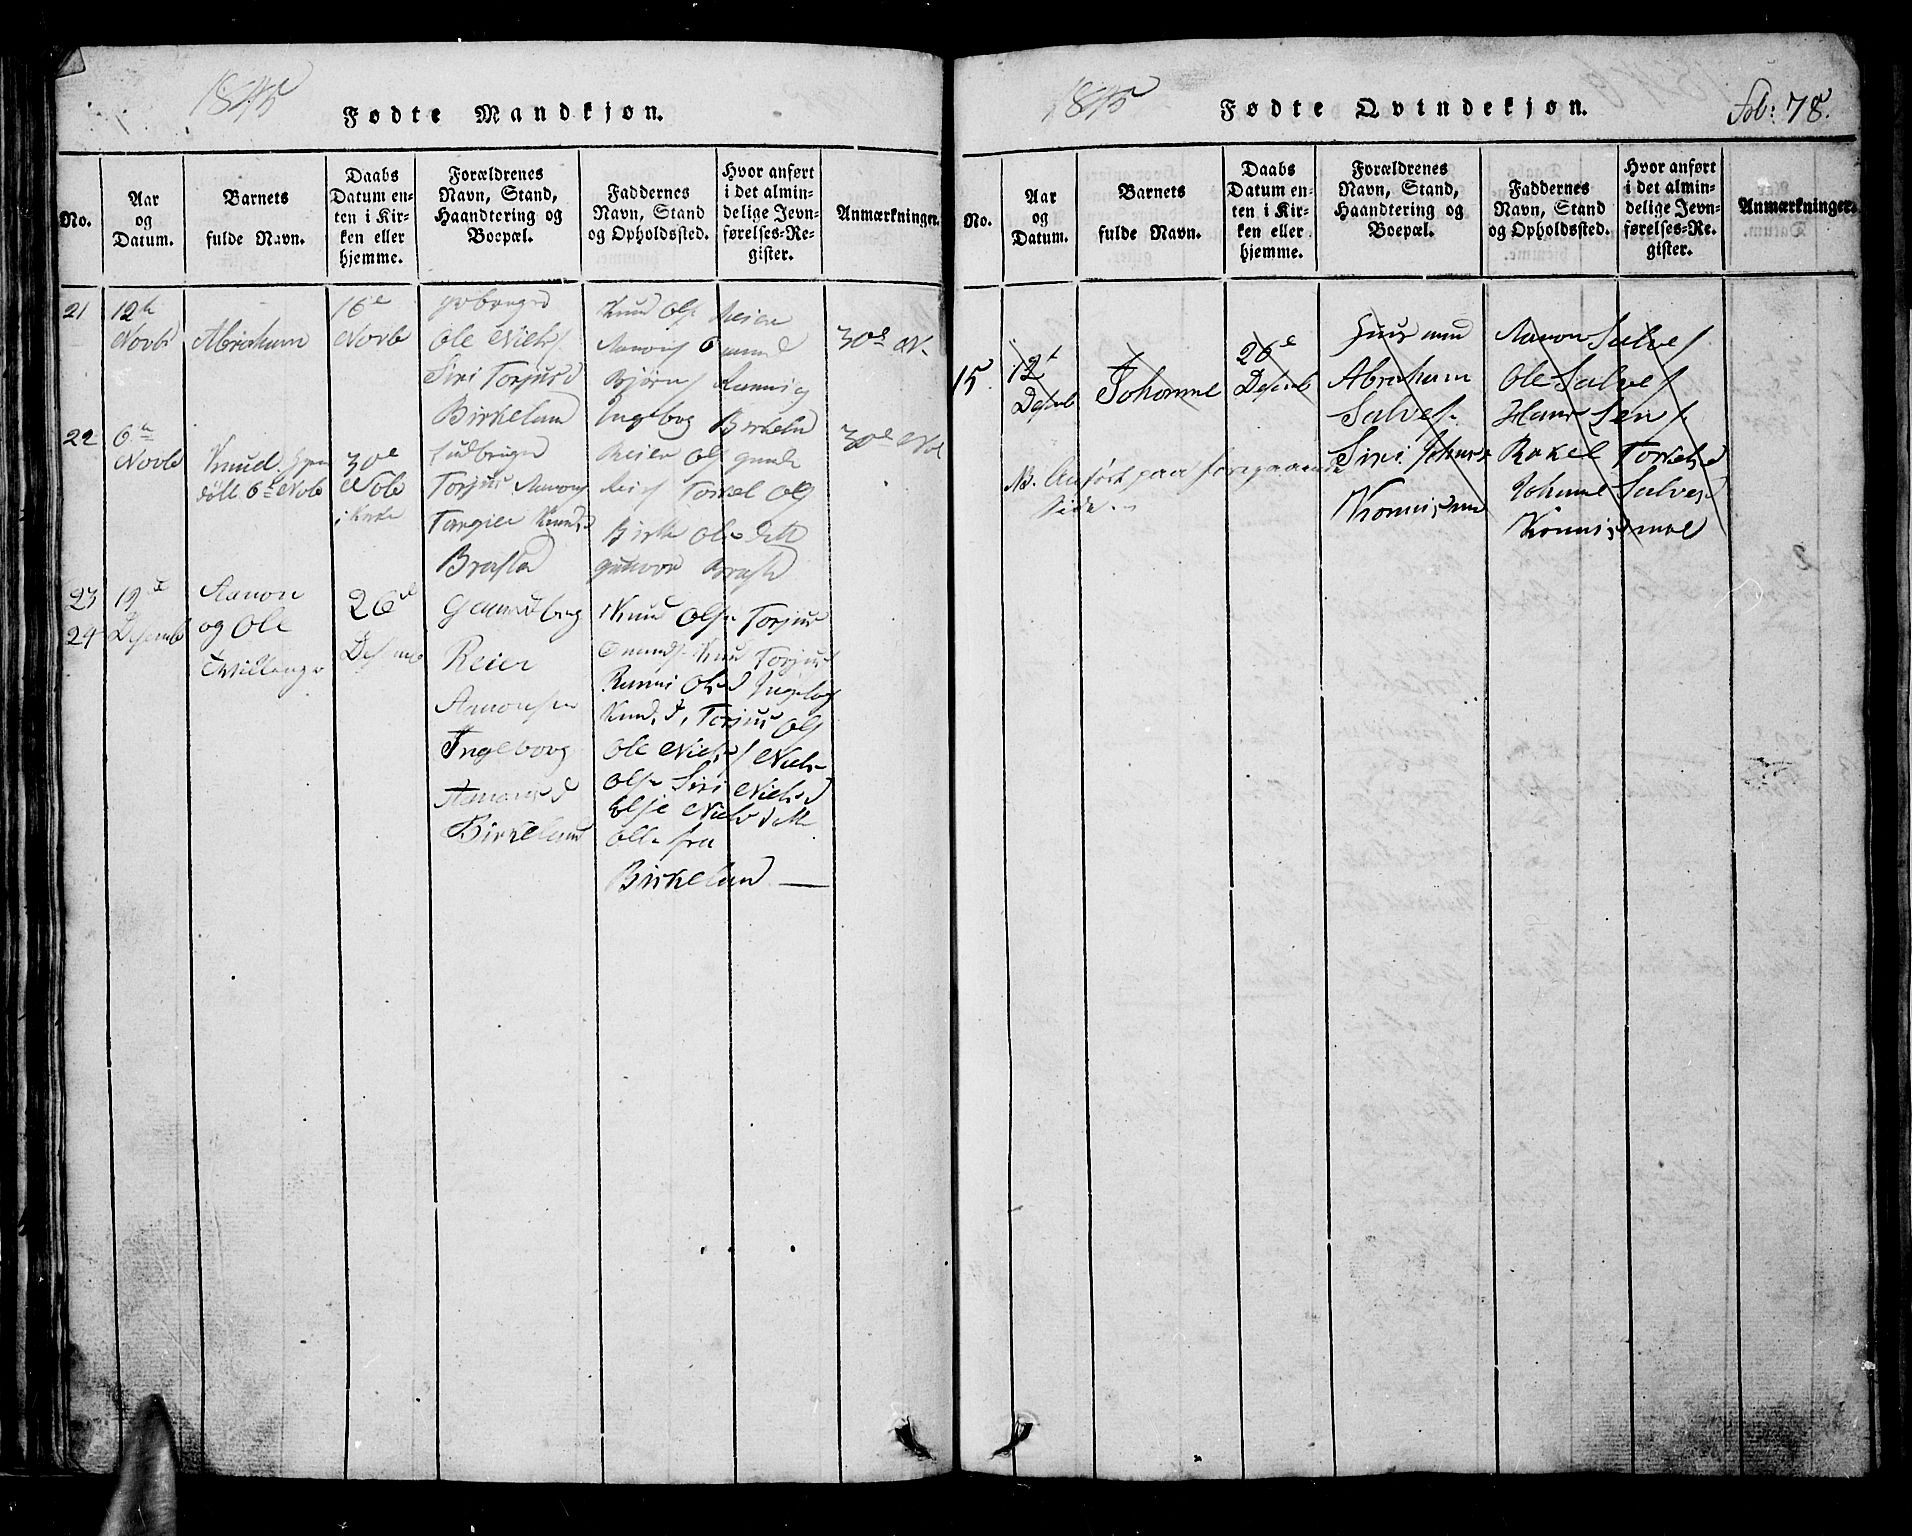 1845
Fødte Mandkjøn.
No.
Aar
og
Datum.
Barnets
fulde Navn.
Daabs
Datum en-
ten i Kir-
ken eller
hjemme.
Forældrenes
Navn, Stand,
Haandtering og
Boepæl.
Faddernes
Navn, Stand
og Opholdssted.
Hvor anført
i det almin-
delige Jevn-
førelses-Re-
gister.
Anmærkninger.
21
12te
Novb
Abraham
16de
Novb
Ole Niels
Siri Torjusd
Birkeland
Knud Ols Reier
Aanons Omund
Bjørns Rannig
Ingebog Birkeland
30de N
22
6te
Novb
Knud
døbt 6te Nob
30de
Nob
i Kirke
Torjus Aanons
Torgier Knudsd
Braστad
Reier Ols Gunde
Reiers Torkel Ols
Birk Ole
Gunvor
30de Nov
23
24
19de
Desemb
Aanon
og Ole
Tvillinger
26de
Desemb
Gaardbrug
Reier
Aanonsen
Ingeborg
Aanonsd
Birkeland
Knud Ols Torjus
Omunds Knud Torjus
Ranni Olsd Ingebog
Knudsd, Torjus Ols
Ole Niels Niels
Ols Siri Nielsd
Elsje Nielsd
alle fra
Birkeland
1845
Fødte Qvindekjøn.
Fol: 78.
No.
Aar
og
Datum.
Barnets
fulde Navn.
Daabs
Datum en-
ten i Kir-
ken eller
hjemme.
Forældrenes
Navn, Stand,
Haandtering og
Boepæl.
Faddernes
Navn, Stand
og Opholdssted.
Hvor anført
i det almin-
delige Jevn-
førelses-Re-
gister.
Anmærkninger.
15
12te
Desemb
Johanne
26de
Desemb
Huusmand
Abraham
Salves
Siri Johansd
Aanon Salves
Ole Salves
Hans
Rakel Torkelsd
Johanne Salvesd
NB. Anført paa foregaaende
Side.